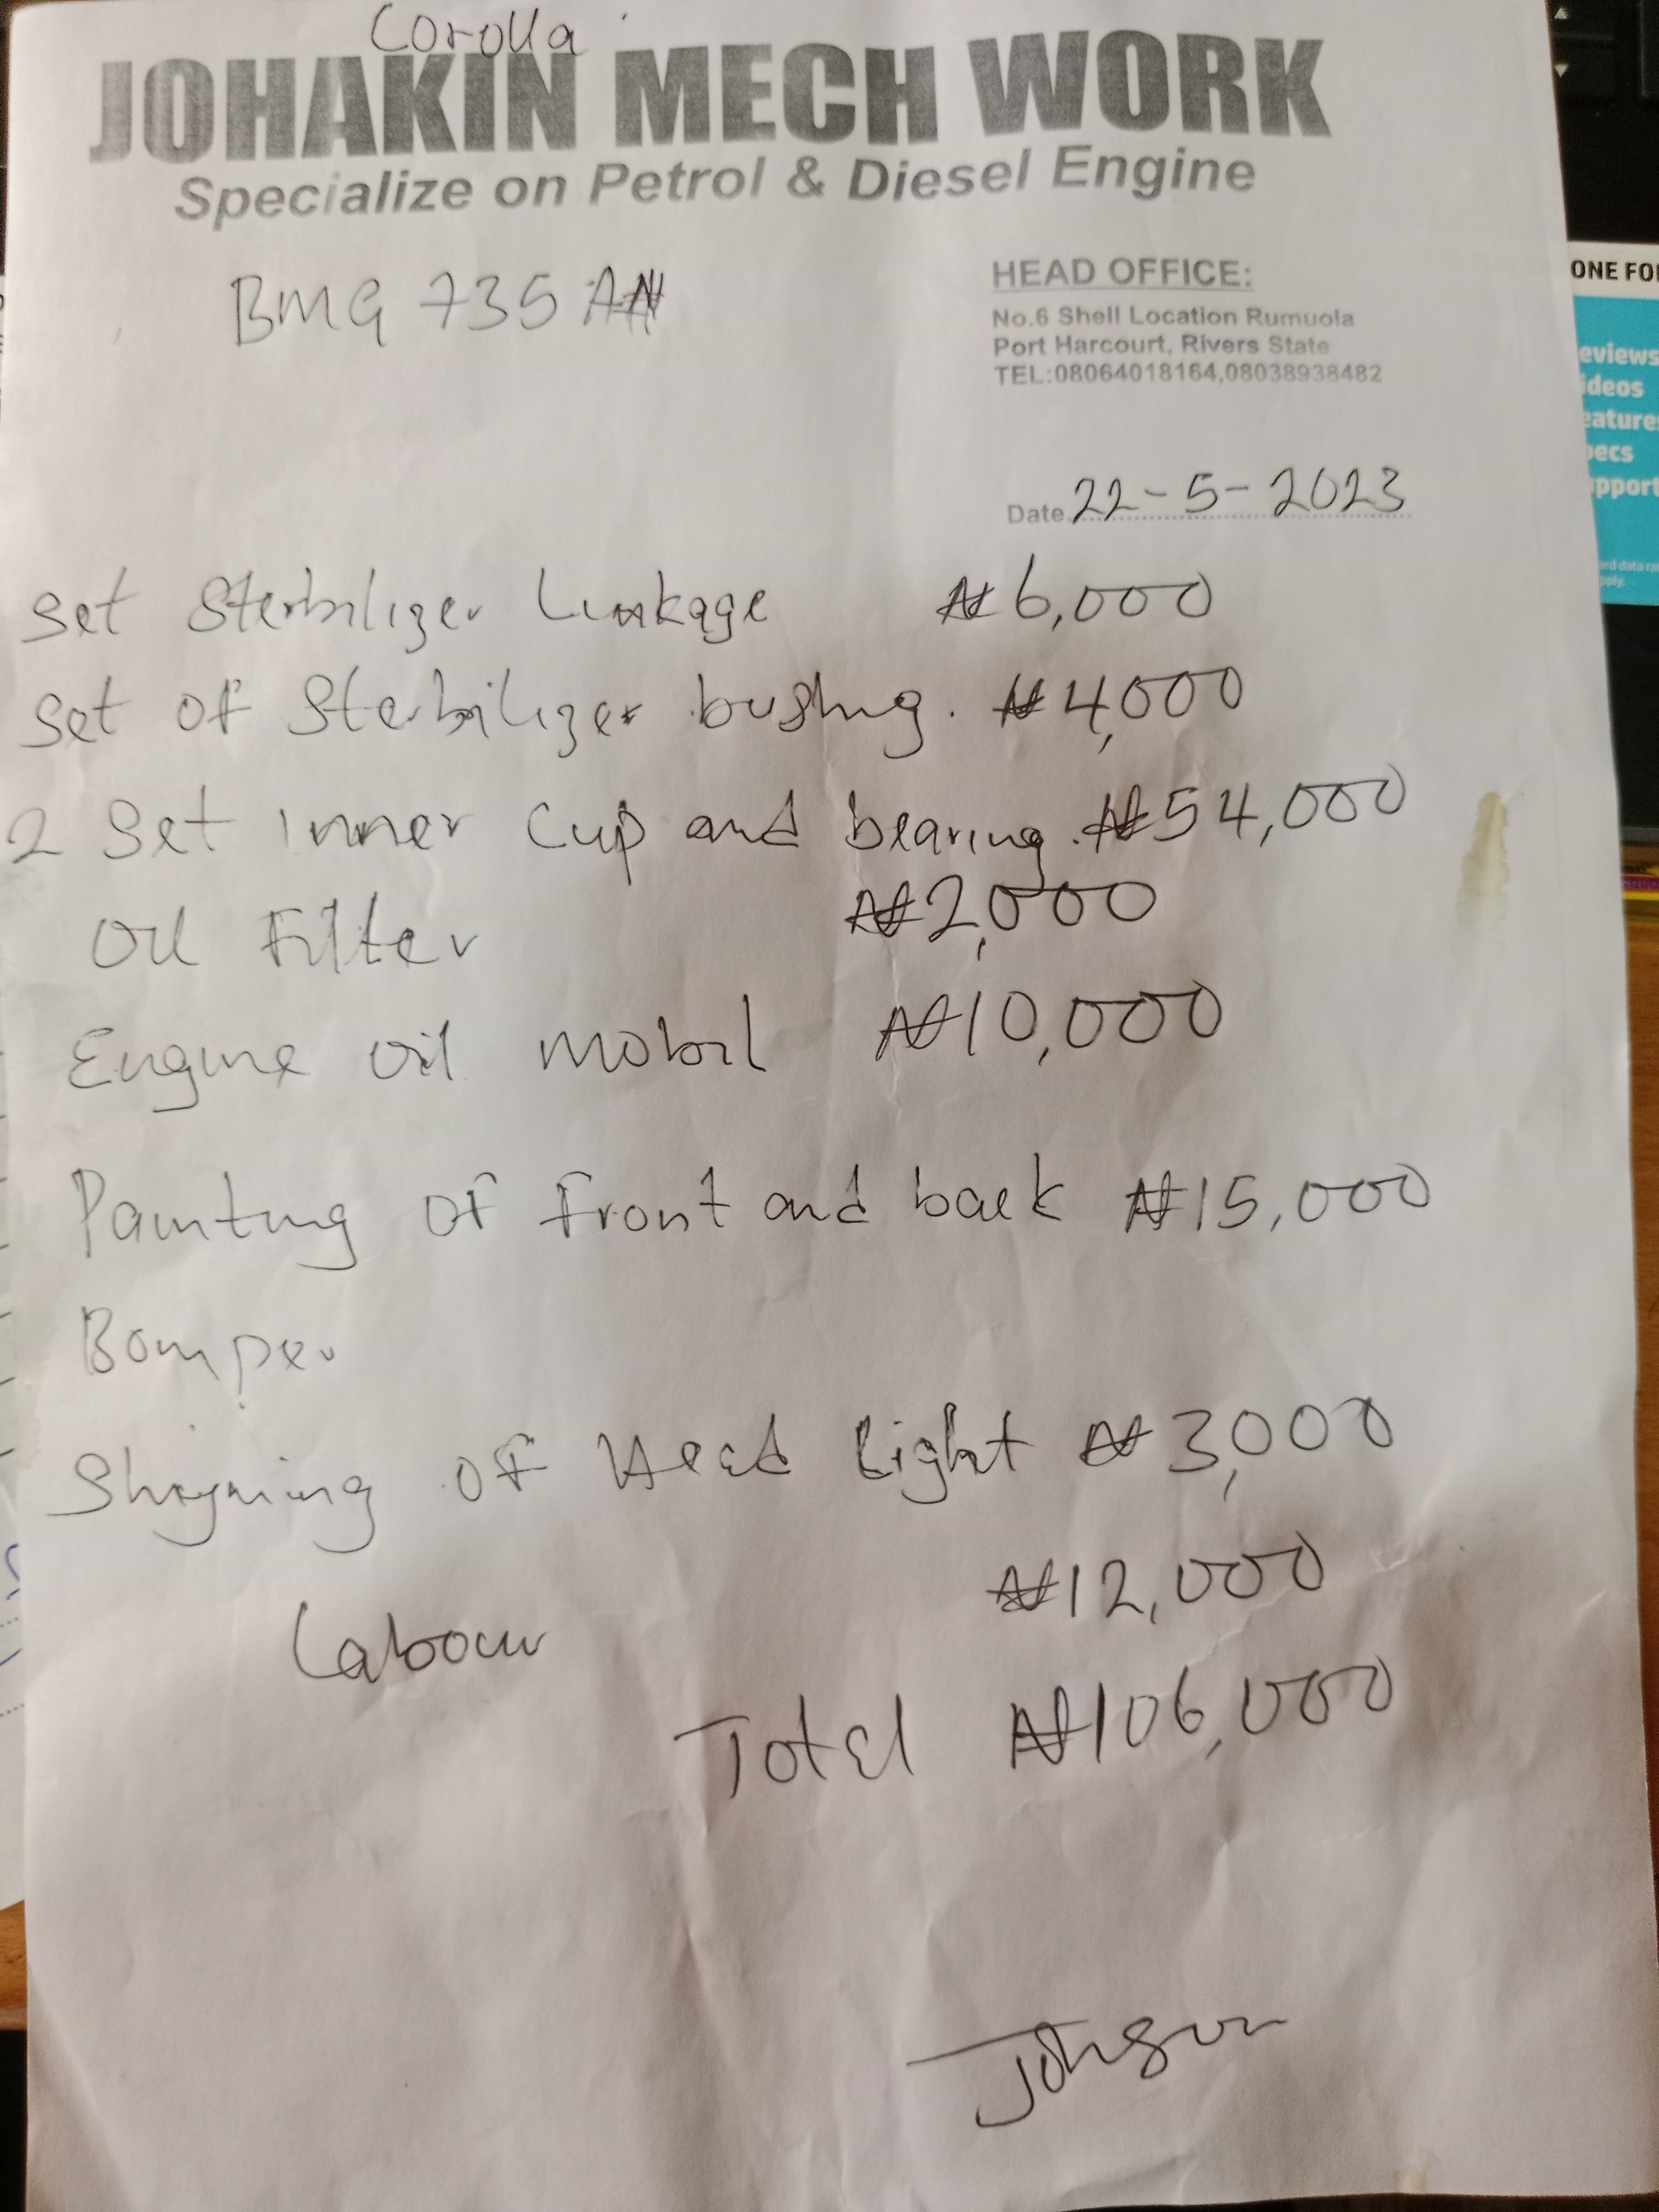 Corolla
JOHAKIN MECH WORK
Specialize on Petrol & Diesel Engine
BMG 735
HEAD OFFICE:
No.6 Shell Location Rumuola
Port Harcourt, Rivers State
TEL:08064018164,08038938482
Date 22-5-2023
Set Sterbilizer Linkage ₦6,000
Set of Sterbilizer bushing. ₦4,000
2 Set Inner Cup and bearing. ₦54,000
Oil Filter ₦2,000
Engine oil mobil ₦10,000
Painting of front and back ₦15,000
Bomper
of Head Light ₦3,000
Labour ₦12,000
Total ₦106,000
Johnson
ONE FO
eviews
ideos
eatures
pecs
pport